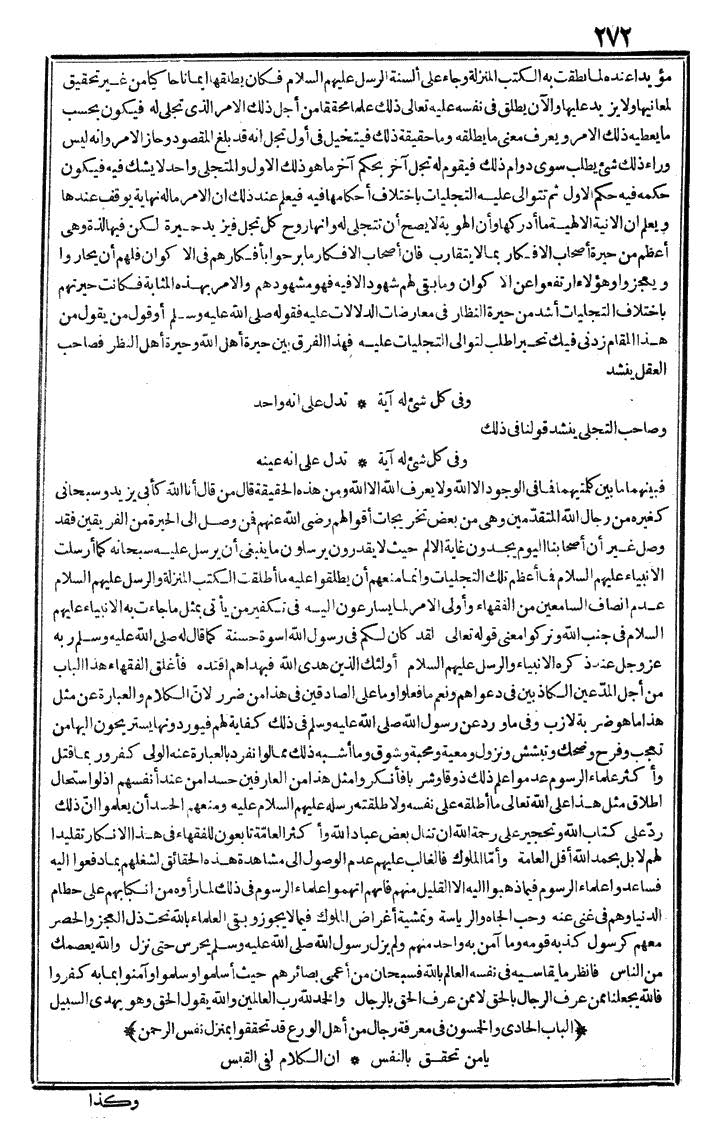 ٢٧٢
مؤيدا عنده لما نطقت به الكتب المنزلة وجاء على ألسنة الرسل عليهم السلام فكان يطلقها ايمانا حاكيا من غير تحقيق
لمعانيها ولا يزيد عليها والآن يطلق فى نفسه عليه تعالى ذلك علما محققا من أجل ذلك الامر الذى تجلى له فيكون بحسب
ما يعطيه ذلك الامر ويعرف معنى ما يطلقه وما حقيقة ذلك فيتخيل فى أول تجل انه قد بلغ المقصود وحاز الامر وانه ليس
وراء ذلك شئ يطلب سوى دوام ذلك فيقوم له تجل آخر بحكم آخر ما هو ذلك الاول والمتجلى واحد لا يشك فيه فيكون
حكمه فيه حكم الاول ثم تتوالى عليه التجليات باختلاف أحكامها فيه فيعلم عند ذلك ان الامر ماله نهاية يوقف عندها
ويعلم ان الانية الالهية ما أدركها وأن الهوية لا يصح أن تتجلى له وانها روح كل تجل فيزيد حيرة لكن فيها لذة وهى
أعظم من حيرة أصحاب الافكار بما لا يتقارب فان أصحاب الافكار ما برحوا بأفكارهم فى الاكوان فلهم أن يحاروا
ويعجزوا وهؤلاء ارتفعوا عن الاكوان وما بقى لهم شهود الا فيه فهو مشهودهم والامر بهذه المثابة فكانت حيرتهم
باختلاف التجليات أشد من حيرة النظار فى معارضات الدلالات عليه فقوله صلى الله عليه وسلم أو قول من يقول من
هذا المقام زدنى فيك تحيرا طلب لتوالى التجليات عليه فهذا الفرق بين حيرة أهل الله وحيرة أهل النظر فصاحب
العقل ينشد
وفى كل شئ له آية * تدل على انه واحد
وصاحب التجلى ينشد قولنا فى ذلك
وفى كل شئ له آية * تدل على انه عينه
فبينهما ما بين كلمتيهما فما فى الوجود الا الله ولا يعرف الله الا الله ومن هذه الحقيقة قال من قال أنا الله كأبى يزيد وسبحانى
كغيره من رجال الله المتقدمين وهى من بعض تخريجات أقوالهم رضى الله عنهم فمن وصل الى الحيرة من الفريقين فقد
وصل غير أن أصحابنا اليوم يجدون غاية الالم حيث لا يقدرون يرسلون ما ينبغى أن يرسل عليه سبحانه كما أرسلت
الانبياء عليهم السلام فما أعظم تلك التجليات وانما منعهم أن يطلقوا عليه ما أطلقت الكتب المنزلة والرسل عليهم السلام
عدم انصاف السامعين من الفقهاء وأولى الامر لما يسارعون اليه فى تكفير من يأتى بمثل ما جاءت به الانبياء عليهم
السلام فى جنب الله وتركوا معنى قوله تعالى لقد كان لكم فى رسول الله اسوة حسنة كما قال له صلى الله عليه وسلم ربه
عز وجل عند ذكره الانبياء والرسل عليهم السلام أولئك الذين هدى الله فبهداهم اقتده فأغلق الفقهاء هذا الباب
من أجل المدّعين الكاذبين فى دعواهم ونعم ما فعلوا وما على الصادقين فى هذا من ضرر لانّ الكلام والعبارة عن مثل
هذا ما هو ضربة لازب وفى ما ورد عن رسول الله صلى الله عليه وسلم فى ذلك كفاية لهم فيوردونها يستريحون اليها من
تعجب وفرح وضحك وتبشش ونزول ومعية ومحبة وشوق وما أشبه ذلك مما لو انفرد بالعبارة عنه الولى كفر وربما قتل
وأكثر علماء الرسوم عدموا علم ذلك ذوقا وشربا فأنكروا مثل هذا من العارفين حسدا من عند أنفسهم اذ لو استحال
اطلاق مثل هذا على الله تعالى ما أطلقه على نفسه ولا طلقته رسله عليهم السلام عليه ومنعهم الحسد أن يعلموا انّ ذلك
ردّ على كتاب الله وتحجير على رحمة الله ان تنال بعض عباد الله وأكثر العامّة تابعون للفقهاء فى هذا الانكار تقليدا
لهم لا بل بحمد الله أقل العامة وأمّا الملوك فالغالب عليهم عدم الوصول الى مشاهدة هذه الحقائق لشغلهم بما دفعوا اليه
فساعدوا علماء الرسوم فيما ذهبوا اليه الا القليل منهم فانهم اتهموا علماء الرسوم فى ذلك لما رأوه من انكبابهم على حطام
الدنيا وهم فى غنى عنه وحب الجاه والرياسة وتمشية أغراض الملوك فيما لا يجوز وبقى العلماء بالله تحت ذل العجز والحصر
معهم كرسول كذبه قومه وما آمن به واحد منهم ولم يزل رسول الله صلى الله عليه وسلم يحرس حتى نزل والله يعصمك
من الناس فانظر ما يقاسيه فى نفسه العالم بالله فسبحان من أعمى بصائرهم حيث أسلموا وسلموا وآمنوا بما به كفروا
فالله يجعلنا ممن عرف الرجال بالحق لا ممن عرف الحق بالرجال والحمد لله رب العالمين والله يقول الحق وهو يهدى السبيل
﴿الباب الحادى والخمسون فى معرفة رجال من أهل الورع قد تحققوا بمنزل نفس الرحمن﴾
يا من تحقق بالنفس * ان الكلام لفى القبس
وكذا